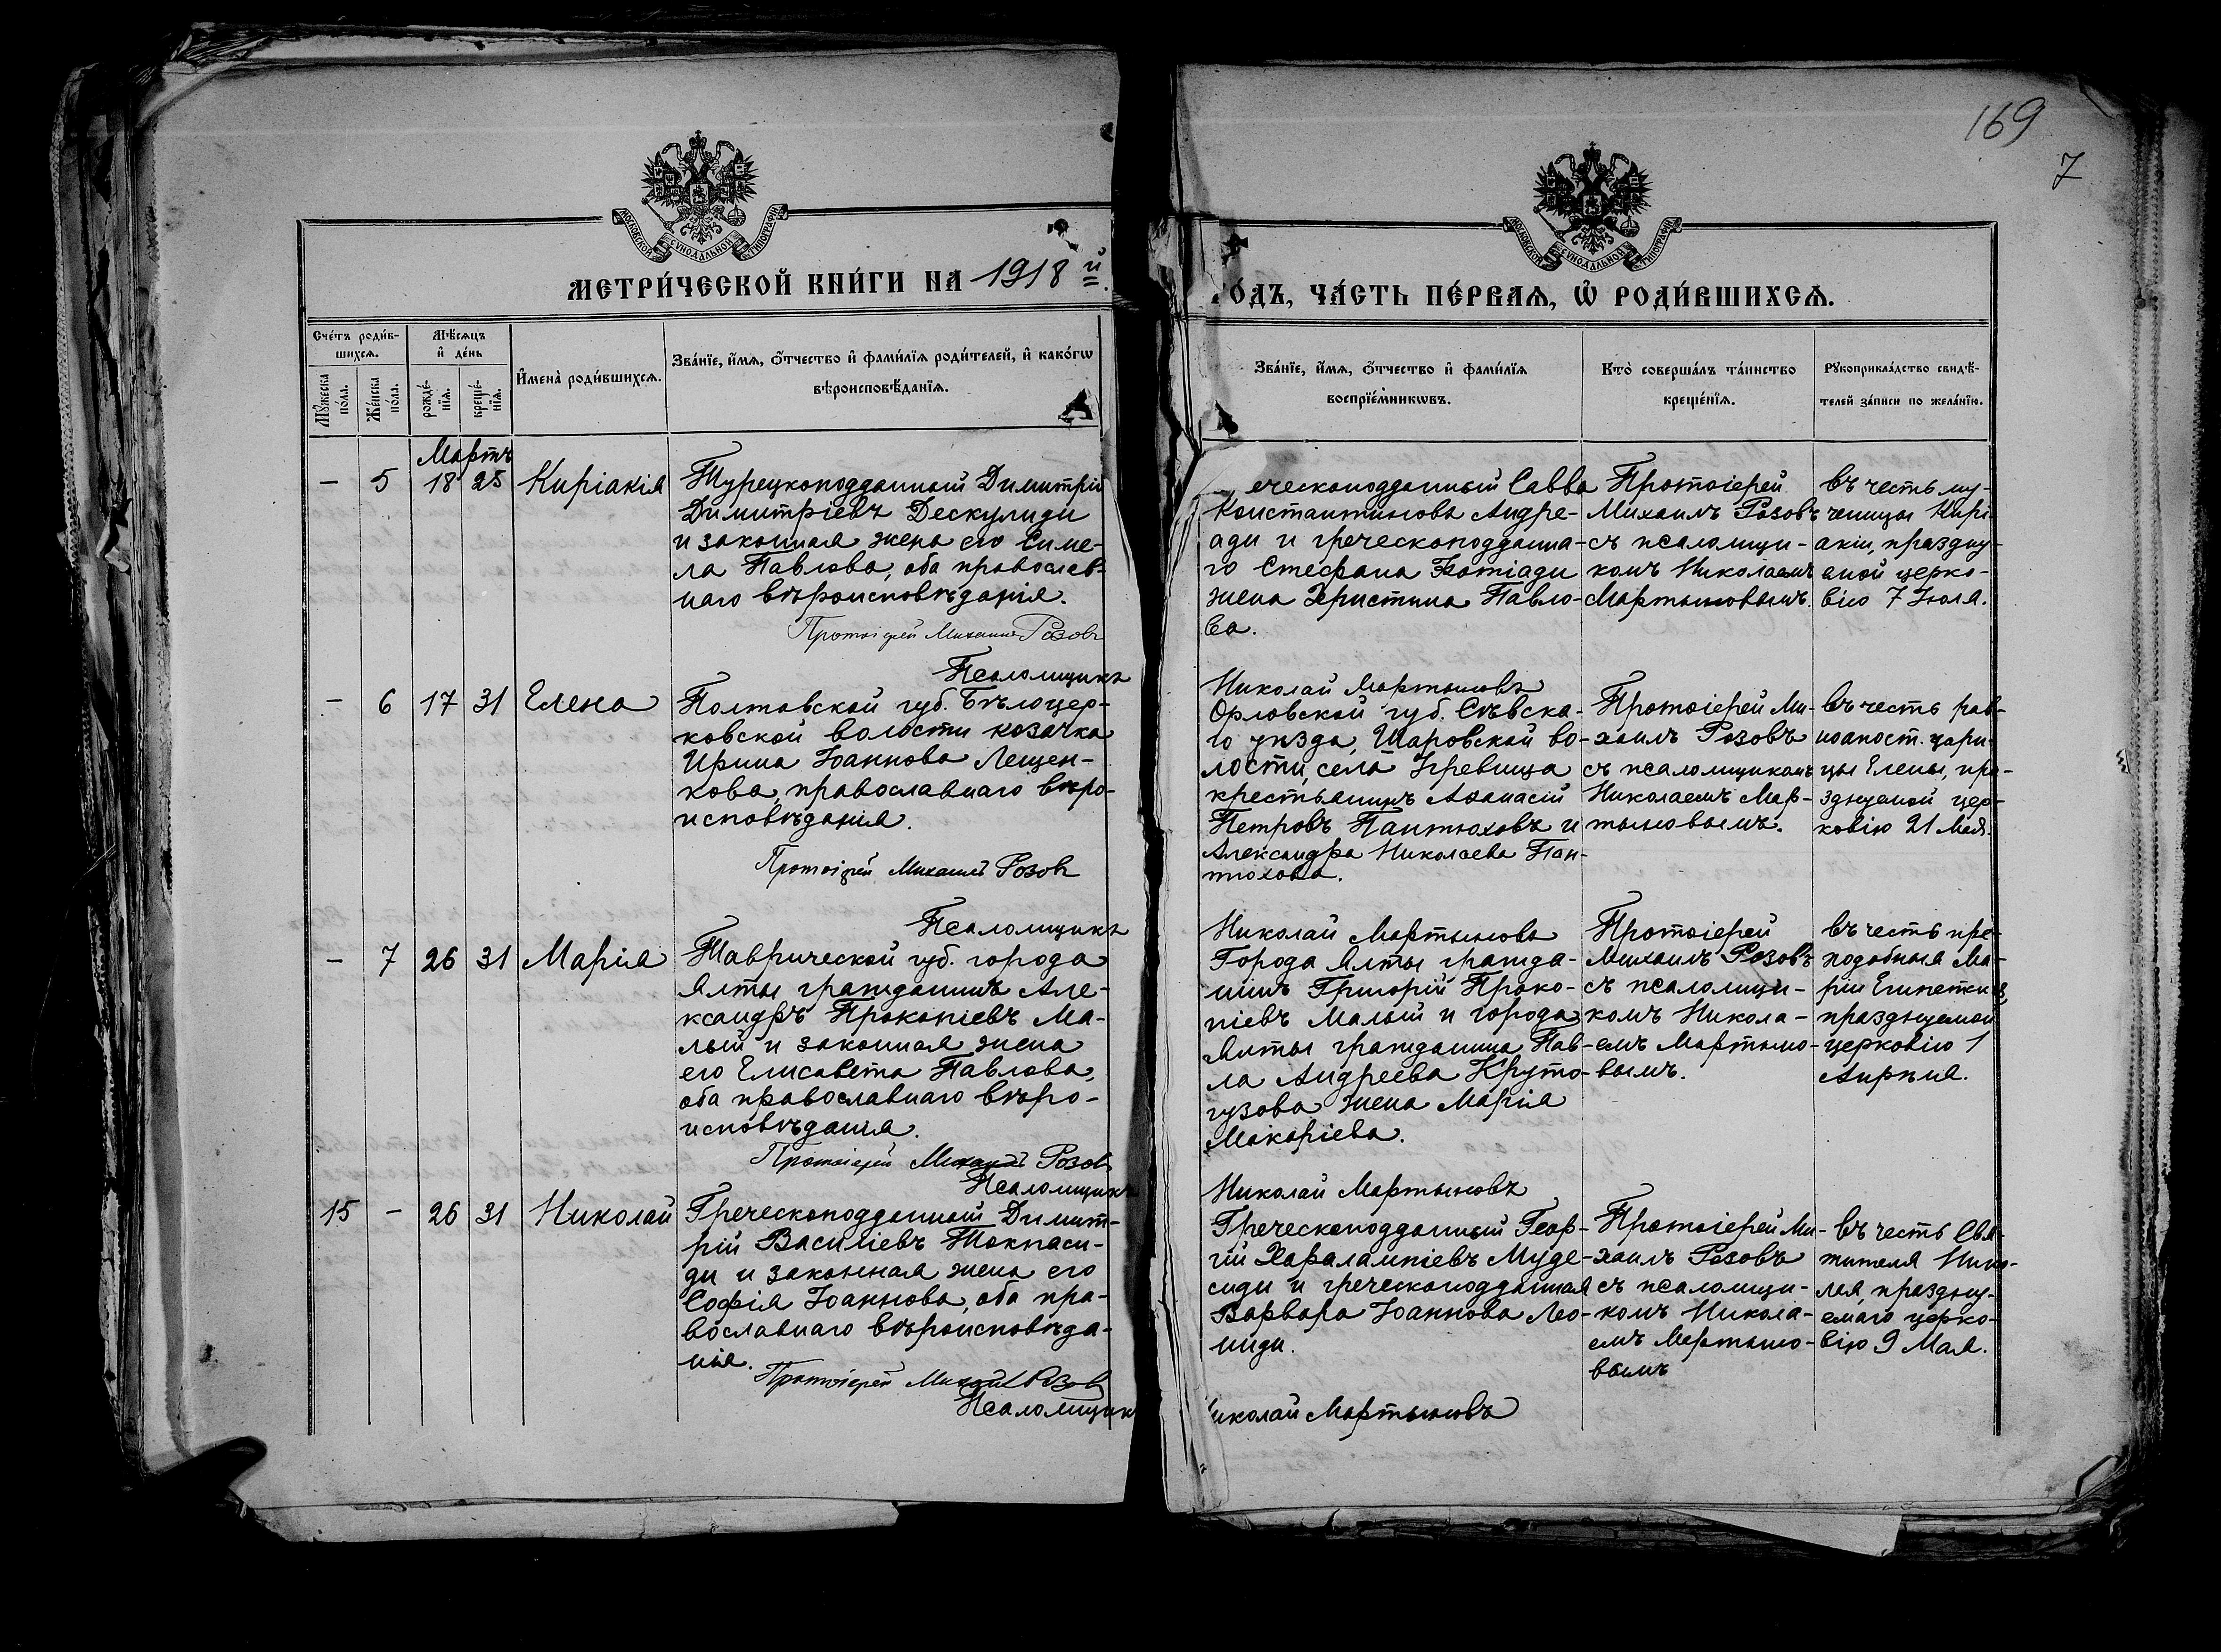 169
7
МОСКОВСКОЙ СѴНОДАЛЬНОЙ ТИПОГРАФІИ
МОСКОВСКОЙ СѴНОДАЛЬНОЙ ТИПОГРАФІИ
МЕТРИ́ЧЕСКОЙ КНИ́ГИ НА 1918 й
О́ДЪ, ЧА́СТЬ ПЕ́РВАѦ, Ѡ҆ РОДИ́ВШИХСѦ.
Сче́тъ роди́в-
шихсѧ.
Мꙋ́жеска по́ла.
Же́нска по́ла.
Мѣ́сѧцъ
и҆ де́нь
рожде́-
нїѧ.
креще́-
нїѧ.
И҆мена̀ роди́вшихсѧ.
Зва́нїе, и҆́мѧ, ѻ҆́тчество и҆ фами́лїѧ роди́телей, и҆ како́гѡ
вѣроисповѣ́данїѧ.
Зва́нїе, и҆́мѧ, ѻ҆́тчество и҆ фами́лїѧ
воспрїе́мникѡвъ.
Кто̀ соверша́лъ та́инство
креще́нїѧ.
Рꙋкоприкла́дство свидѣ́-
телей за́писи по жела́нїю.
Мартъ
– 5 18 25 Киріакія
Турецкоподданный Димитрій
Димитріевъ Дескулиди
и законная жена его Симе-
ла Павлова, оба православ-
наго вѣроисповѣданія.
Протоіерей Михаилъ Розовъ
Псаломщикъ
еческоподданный Савва
Константиновъ Андре-
ади и греческоподданна-
го Стефана жена Христина Павло-
ва.
Николай Мартыновъ
Протоіерей
Михаилъ Розовъ
съ псаломщи-
комъ Николаемъ
Мартыновымъ.
въ честь му-
ченицы Кирі-
акіи, праздну-
емой церко-
вію 7 Іюля.
– 6 17 31 Елена
Полтавской губ. Бѣлоцер-
ковской волости козачка
Ирина Іоаннова Лещен-
кова, православнаго вѣро-
исповѣданія.
Протоіерей Михаилъ Розовъ
Псаломщикъ
Орловской губ. Сѣвска-
го уѣзда, Шаровской во-
лости, села крестьянинъ Аѳанасій
Петровъ Пантюховъ и
Александра Николаева Пан-
тюхова.
Николай Мартыновъ
Протоіерей Ми-
хаилъ Розовъ
съ псаломщикомъ
Николаемъ Мар-
тыновымъ.
въ честь рав-
ноапост. цари-
цы Елены, пра-
зднуемой цер-
ковію 21 Мая.
– 7 26 31 Марія
Таврической губ. города
Ялты гражданинъ Але-
ксандръ Прокопіевъ Ма-
лый и законная жена
его Елисавета Павлова,
оба православнаго вѣро-
исповѣданія.
Протоіерей Михаилъ Розовъ
Псаломщикъ
Города Ялты гражда-
нинъ Григорій Проко-
піевъ Малый и города
Ялты гражданина Пав-
ла Андреева Круто-
гузова жена Марія
Макаріева.
Николай Мартыновъ
Протоіерей
Михаилъ Розовъ
съ псаломщи-
комъ Никола-
емъ Мартыно-
вымъ.
въ честь пре-
подобныя Ма-
ріи Египетскія,
празднуемой
церковію 1
Апрѣля.
15 – 26 31 Николай
Греческоподданный Димит-
рій Василіевъ Токпаси-
ди и законная жена его
Софія Іоаннова, оба пра-
вославнаго вѣроисповѣда-
нія.
Протоіерей Михаилъ Розовъ
Псаломщик
Греческоподданный Геор-
гій Харалампіевъ Муде-
сиди и греческоподданная
Варвара Іоаннова Лео-
ниди.
иколай Мартыновъ
Протоіерей Ми-
хаилъ Розовъ
съ псаломщи-
комъ Никола-
емъ Мартыно-
вымъ
въ честь Свя-
тителя Нико-
лая, праздну-
емаго церко-
вію 9 Мая.